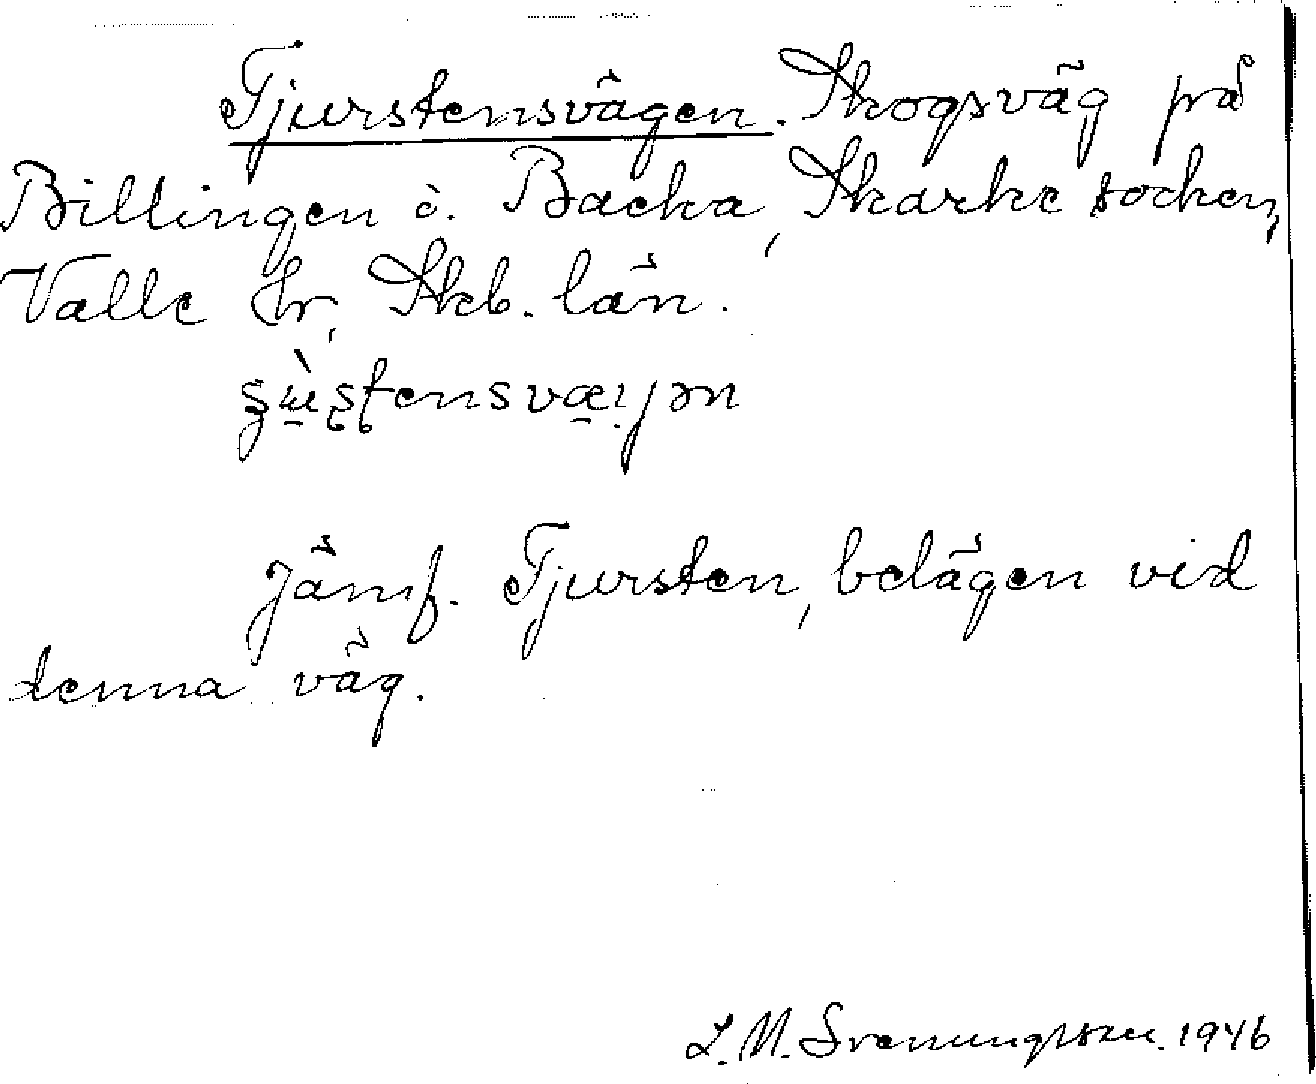 Tjurstensvägen. Skogsväg på
Billingen ö. Backa, Skarke socken,
Valle hr, Skb. län.
Jämf. Tjursten, belägen vid
denna väg.
L. M. Svenungsson. 1946